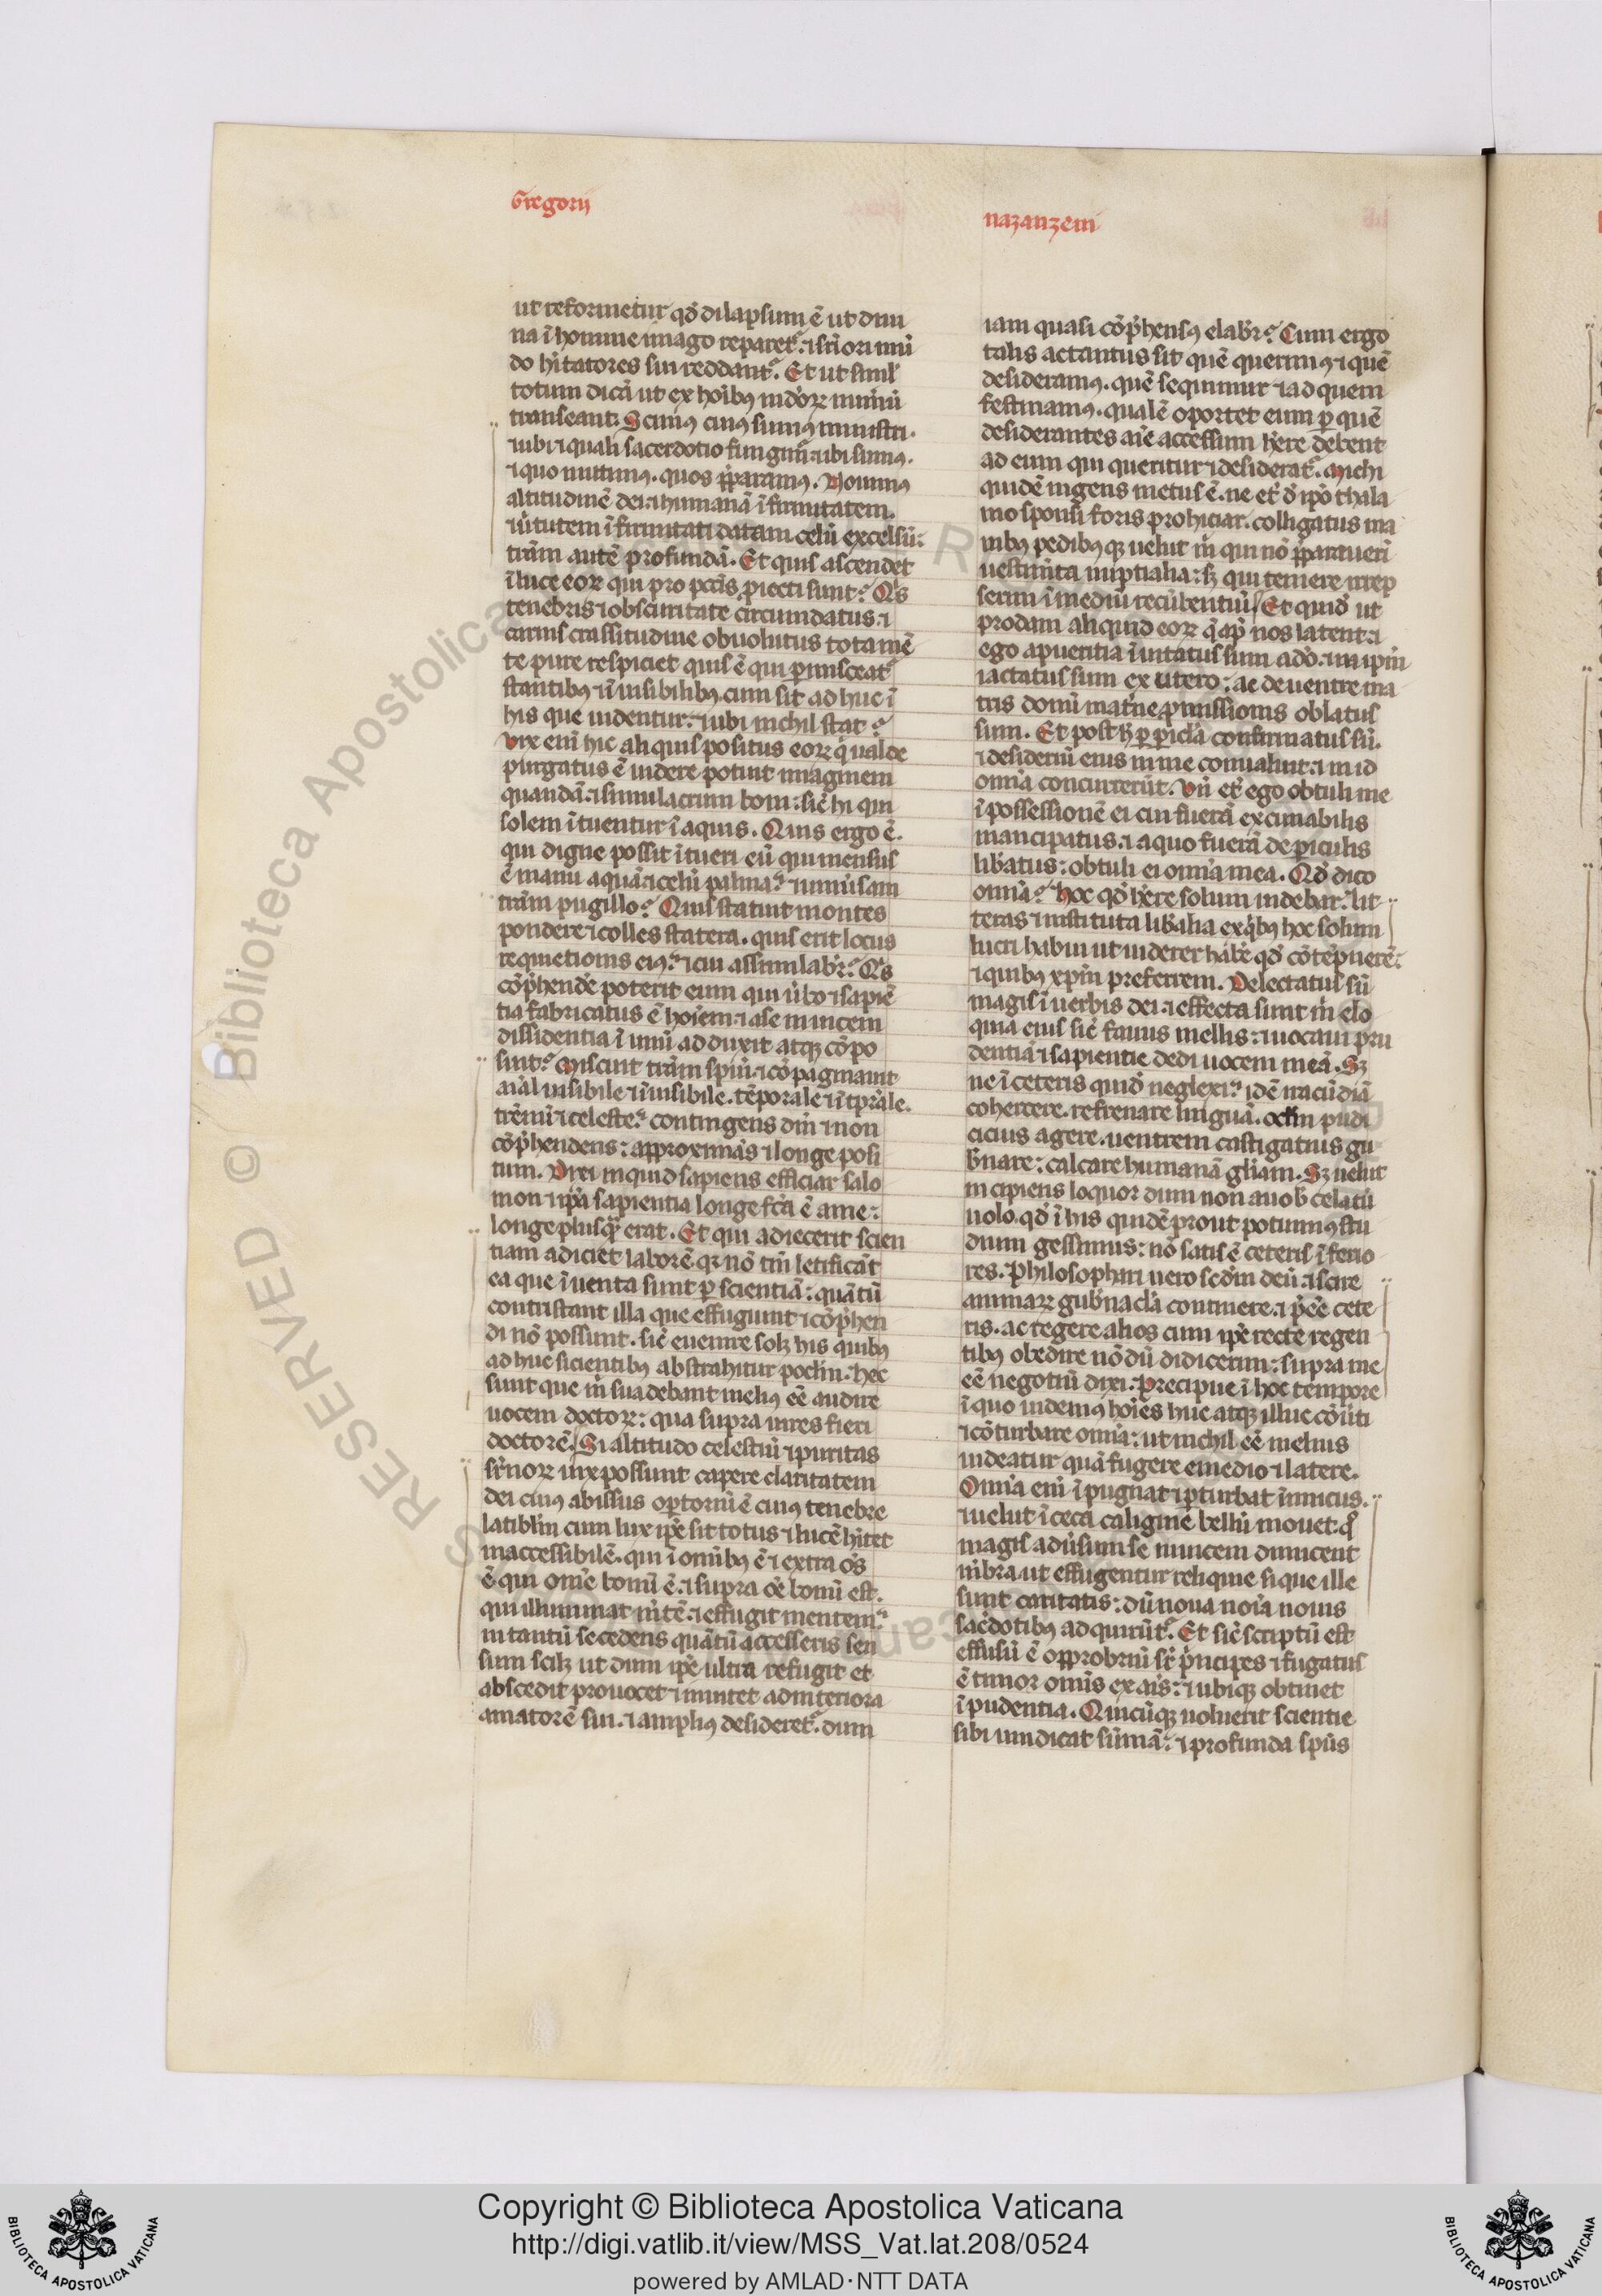 Gregorii
ut reformetur qđ dilapsum ē ut diui
na ī homine imago reparet᷑. ⁊ sc̄iori mū
do hītatores sui reddant᷑. Et ut simł
totum dicā ut ex hoībꝫ in dōꝝ nūiū
transeant. Scimꝰ cuiꝰ sumꝰ ministri.
⁊ ubi ⁊ quali sacerdotio fungim᷑. ubi sumꝰ.
⁊ quo mittimꝰ. quos p̄paramꝰ. Nouimꝰ
altitudinē dei. ⁊ humanā īfirmitatem.
⁊ ūtutem īfirmitati datam celū excelsū:
trām autē profundā. Et quis ascendet
ī luce eoꝝ qui pro pctīs, ꝓiecti sunt? Qͥs
tenebris ⁊ obscuritate circumdatus. ⁊
carnis crassitudine obuolutus tota mē
te pure respiciet quis ē qui ꝑmisceat᷑
stantibꝰ ⁊ īuisibilibꝰ. cum sit ad huc ī
his que uidentur. ⁊ ubi nichil stat?
Vix enī hic aliquis positus eoꝝ q̇ ualde
purgatus ē uidere potuit imaginem
quandā. ⁊ simulacrum boni: sic̄ hi qui
solem ītuentur ī aquis. Quis ergo ē.
qui digne possit ītueri eū qui mensus
ē manu aquā. ⁊ celū palma? ⁊ uniūsam
trām pugillo? Quis statuit montes
pondere ⁊ colles statera. quis erit locus
requietionis eiꝰ? ⁊ cui assimilab᷑r? Qͥs
cōp̄hendē poterit eum qui ūbo ⁊ sapiē
tia fabricatus ē hoīem. ⁊ a se inuicem
dissidentia ī unū adduxit atqꝫ cōpo
suit? Miscuit trām spūi. ⁊ cōpaginauit
aīal uisibile ⁊ īuisibile. tēporale ⁊ ītp̄rale.
trēnū ⁊ celeste? contingens dm̄ ⁊ non
cōp̄hendens: approximās ⁊ longe posi
tum. Dixi inquid sapiens efficiar salo
mon ⁊ ip̄a sapientia longe fc̄a ē a me:
longe plusqͣꝫ erat. Et qui adiecerit scien
tiam adiciet laborē. qꝫ nō tm̄ letificāt
ea que īuenta sunt ꝑ scientiā: quātū
contristant illa que effugiunt ⁊ cōp̄hen
di nō possunt. sic̄ euenire solꝫ his quibꝰ
ad huc sicientibꝰ abstrahitur poclm̄. hec
sunt que m̄ suadebant melius eē audire
uocem doctoꝝ: qua supra uires fieri
doctorē. Si altitudo celestiū ⁊ puritas
sr̄noꝝ uix possunt capere claritatem
dei cuiꝰ abissus optoriū ē cuiꝰ tenebre
latiblm̄ cum lux ip̄e sit totus ⁊ lucē hītet
inaccessibilē. qui ī omībꝰ ē ⁊ extra oīs
ē qui om̄e bonū ē. ⁊ supra oē bonū est.
qui illuminat mētē. ⁊ effugit mentem?
in tantū secedens quātū accesseris sen
sum scilꝫ ut dum ip̄e ultra refugit et
abscedit prouocet ⁊ inuitet ad interiora
amatorē sui. ⁊ amplius desideret᷑. dum
nazanzeni
iam quasi cōp̄hensꝰ elab᷑r? Cum ergo
talis ac tantus sit quē querimꝰ ⁊ quē
desideramꝰ. quē sequimur ⁊ ad quem
festinamꝰ. qualē oportet eum ꝑ quē
desiderantes aīe accessum hēre debent
ad eum qui queritur ⁊ desiderat᷑. Michi
quidē ingens metus ē. ne et̄ đ ip̄o thala
mo sponsi foris prohiciar. colligatus ma
nibꝰ pedibꝰqꝫ uelut m̄ qui nō p̄parauerī
uestimīta nuptialia: sꝫ qui temere irrep
serim ī mediū recūbentiū. Et quid ut
prodam aliquid eoꝝ q̄ ap̄ nos latent. ⁊
ego a pueritia īuitatus sum a dō. ⁊ in ip̄m
iactatus sum ex utero: ac de uentre ma
tris domī matr̄ne ꝓmissionis oblatus
sum. Et post h̄ ꝑ ꝑicl̄a confirmatus sū.
⁊ desideriū eius in me conualuit. ⁊ in id
om̄ia concurrerūt. Vn̄ et̄ ego obtuli me
ī possessionē ei cui fuerā ex cunabilis
mancipatus. ⁊ a quo fuerā de ꝑiculis
lib̄atus: obtuli ei om̄ia mea. Qđ dico
om̄ia? hoc qđ hēre solum uidebar. lit
teras ⁊ instituta lib̄alia ex qͥbꝰ hoc solum
lucri habui ut uiderer hābē qđ cōtēpnerē:
⁊ quibꝰ xp̄m preferrem. Delectatus sū
magis ī uerbis dei. ⁊ effecta sunt m̄ elo
quia eius sic̄ fauus mellis: ⁊ uocaui pru
dentiā ⁊ sapientie dedi uocem meā. Sꝫ
ne ī ceteris quid neglexi? idē iracūdiā
cohercere. refrenare linguā. oclm̄ pudi
cicius agere. uentrem castigatius gu
b̄nare: calcare humanā glīam. Sꝫ uelut
incipiens loquor dum non a uob̄ celatū
uolo. qđ ī his quidē prout potuimꝰ stu
dium gessimus: nō satis ē ceteris īferio
res. Philosophari uero scđm deū. ⁊ scire
animaꝝ gub̄nacl̄a continere. ⁊ p̄eē cete
ris. ac regere alios cum ip̄e recte regen
tibꝰ obedire nō dū didicerim: supra me
eē negotiū dixi. Precipue ī hoc tempore
ī quo uidemꝰ hoīes huc atqꝫ illuc cōūti
⁊ cōturbare om̄ia: ut nichil eē melius
uideatur quā fugere e medio ⁊ latere.
Om̄ia enī īpugnat ⁊ ꝑturbat īimicus.
⁊ uelut ī ceca caligine bellū mouet. qͦ
magis adūsum se inuicem dimicent
mēbra ut effugentur reliquie si que ille
sunt caritatis: dū noua noīa nouis
sac̄dotibꝰ adquirūt᷑. Et sic̄ scriptū est
effusū ē opprobriū sr̄ p̄ncipes ⁊ fugatus
ē timor om̄is ex aīs: ⁊ ubiqꝫ obtinet
īpudentia. Quicūqꝫ uoluerit scientie
sibi uindicat sūmā: ⁊ profunda spūs
Copyright © Biblioteca Apostolica Vaticana
http://digi.vatlib.it/view/MSS_Vat.lat.208/0524
powered by AMLAD·NTT DATA
BIBLIOTECA APOSTOLICA VATICANA
BIBLIOTECA APOSTOLICA VATICANA